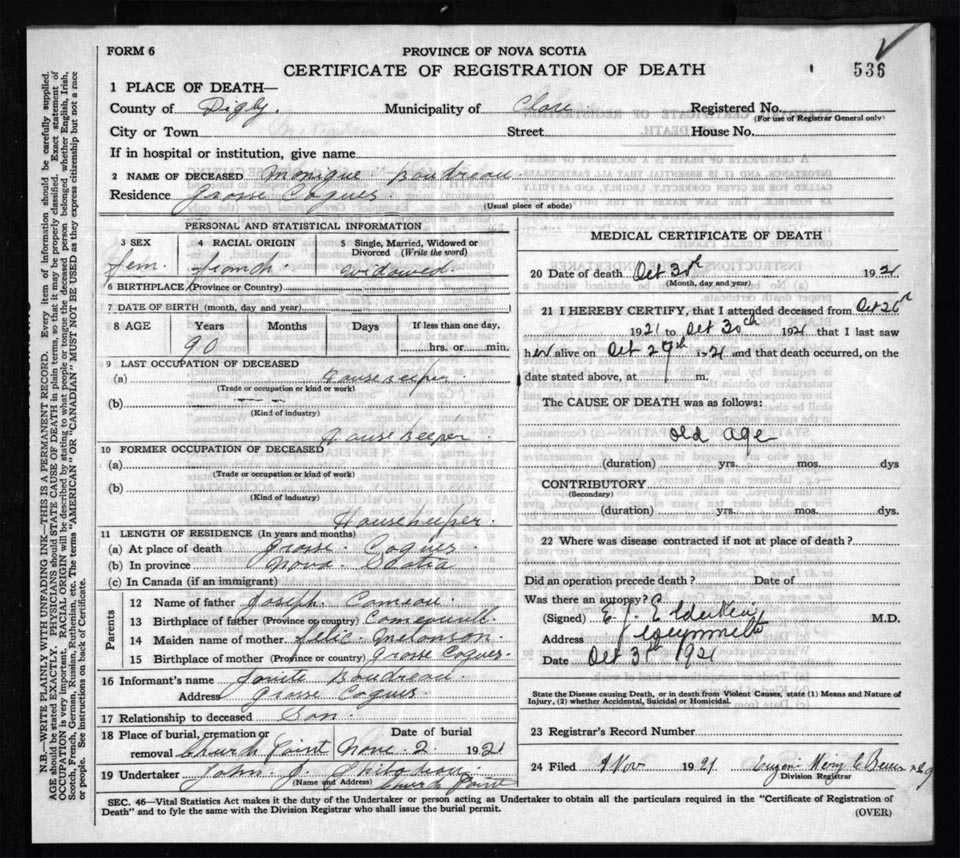 FORM 6
PROVINCE OF NOVA SCOTIA
CERTIFICATE OF REGISTRATION OF DEATH
536
1 PLACE OF DEATH—
County of Digby. Municipality of Clare Registered No.
(For use of Registrar General only)
City or Town Street House No.
If in hospital or institution, give name
2 NAME OF DECEASED Monique Boudreau
Residence Grosse Coques
(Usual place of abode)
PERSONAL AND STATISTICAL INFORMATION
3 SEX 4 RACIAL ORIGIN 5 Single, Married, Widowed or Divorced (Write the word)
Fem. Franch. Widowed.
6 BIRTHPLACE (Province or Country)
7 DATE OF BIRTH (month, day and year)
8 AGE Years Months Days If less than one day,
90 hrs. or min.
9 LAST OCCUPATION OF DECEASED
(a) House Keeper
(Trade or occupation or kind of work)
(b)
(Kind of industry)
House Keeper
10 FORMER OCCUPATION OF DECEASED
(a)
(Trade or occupation or kind of work)
(b)
(Kind of industry)
Housekeeper.
11 LENGTH OF RESIDENCE (In years and months)
(a) At place of death Grosse Coques
(b) In province Nova Scotia
(c) In Canada (if an immigrant)
Parents
12 Name of father Joseph Comeau
13 Birthplace of father (Province or country)
14 Maiden name of mother Melonson.
15 Birthplace of mother (Province or country) Grosse Coques.
16 Informant's name Boudreau
Address Grosse Coques
17 Relationship to deceased Son
18 Place of burial, cremation or removal Date of burial
Church Point Nove. 2. 1921
19 Undertaker John J.
(Name and Address) Church Point
MEDICAL CERTIFICATE OF DEATH
20 Date of death Oct 30th 1921
(Month, day and year)
21 I HEREBY CERTIFY, that I attended deceased from Oct 26th
1921 to Oct 30th 1921 that I last saw
her alive on Oct 29th 1921 and that death occurred, on the
date stated above, at m.
The CAUSE OF DEATH was as follows:
old age
(duration) yrs. mos. dys
CONTRIBUTORY
(Secondary)
(duration) yrs. mos. dys.
22 Where was disease contracted if not at place of death?
Did an operation precede death? Date of
Was there an autopsy?
(Signed) E. J. Elderkin M.D.
Address Weymouth
Date Oct 31th 1921
State the Disease causing Death, or in death from Violent Causes, state (1) Means and Nature of
Injury, (2) whether Accidental, Suicidal or Homicidal.
23 Registrar's Record Number
24 Filed Nov 1921
Division Registrar
SEC. 46—Vital Statistics Act makes it the duty of the Undertaker or person acting as Undertaker to obtain all the particulars required in the "Certificate of Registration of
Death" and to fyle the same with the Division Registrar who shall issue the burial permit.
(OVER)
N.B.—WRITE PLAINLY WITH UNFADING INK—THIS IS A PERMANENT RECORD. Every item of information should be carefully supplied.
AGE should be stated EXACTLY. PHYSICIANS should STATE CAUSE OF DEATH in plain terms, so that it may be properly classified. Exact statement of
OCCUPATION is very important. RACIAL ORIGIN will be described by stating to what people or tongue the deceased person belonged whether English, Irish,
Scotch, French, German, Russian, Ruthenian, etc. The terms "AMERICAN" OR "CANADIAN" MUST NOT BE USED as they express citizenship but not a race
or people. See instructions on back of Certificate.